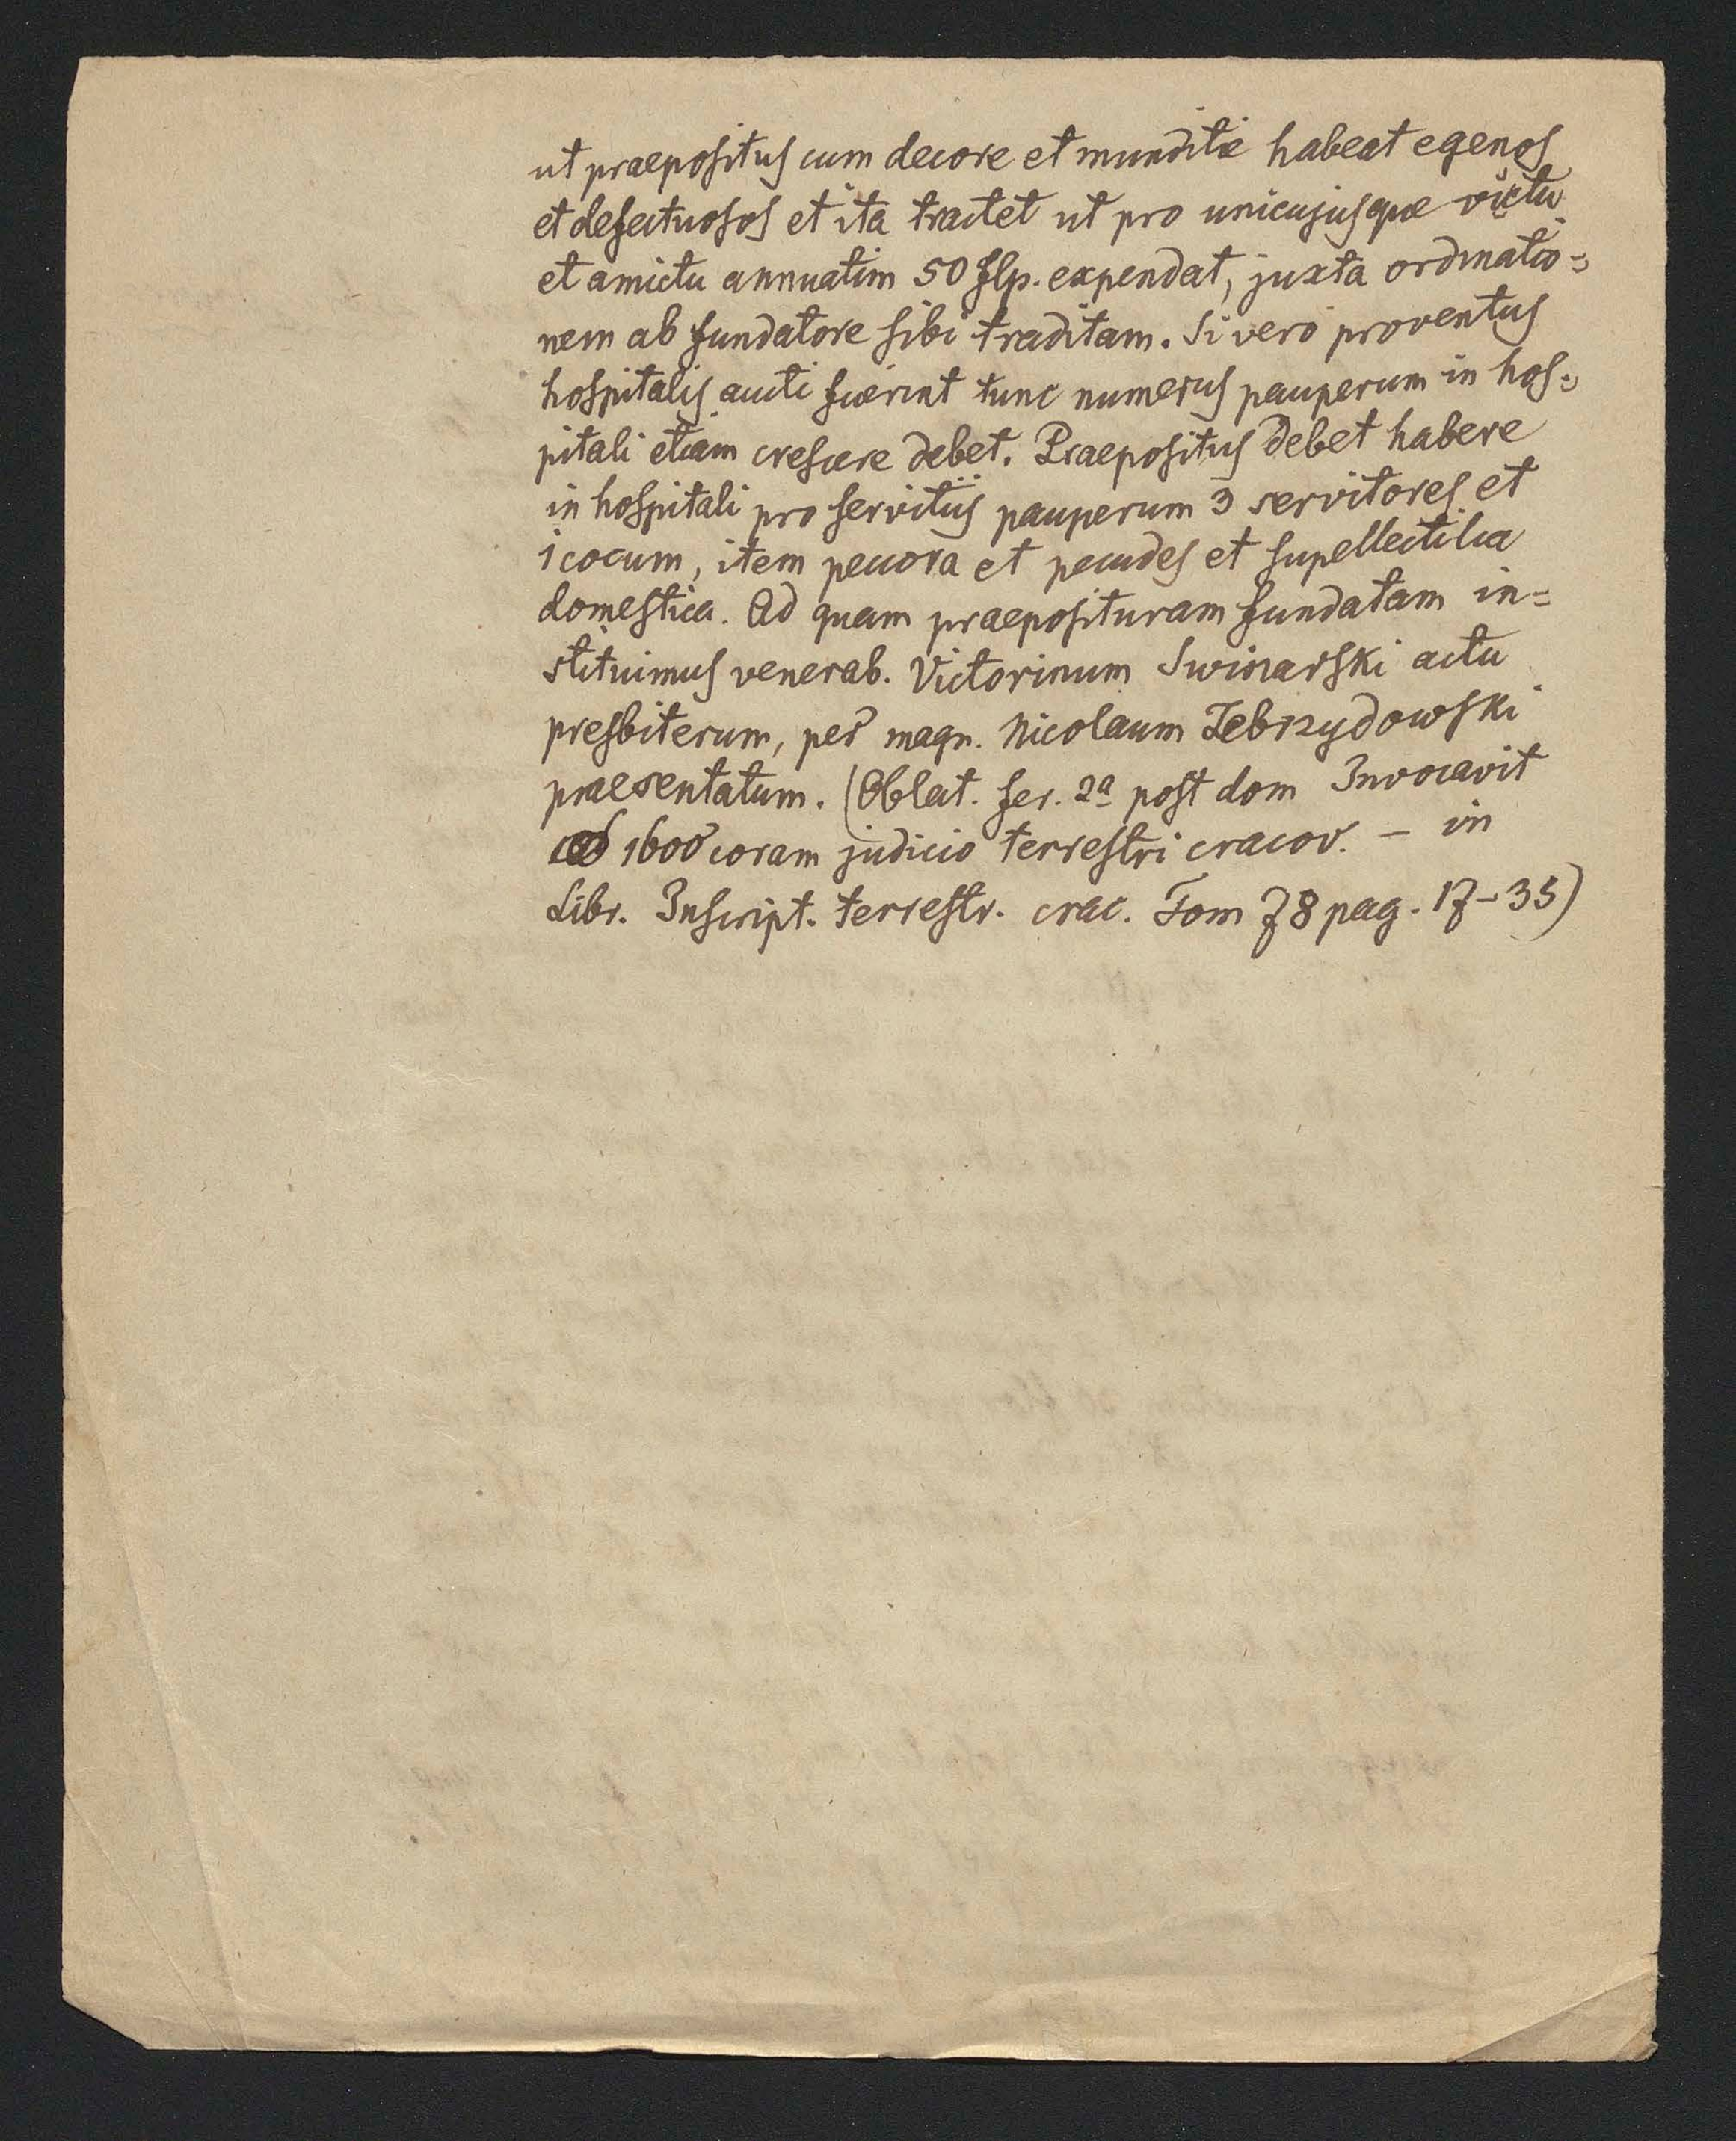 ut praepositus cum decore et munditie habeat egenos
et defectuosos et ita tractet ut pro unicujusque victu
et amictu annuatim 50 flp. expendat, juxta ordinatio=
nem ab fundatore sibi traditam. Si vero proventus
hospitalis aucti fuerint tunc numerus pauperum in hos=
pitali etiam crescere debet. Praepositus debet habere
in hospitali pro servitiis pauperum 3 servitores et
1 cocum, item pecora et pecudes et supellectilia
domestica. Ad quam praeposituram fundatam in=
stituimus venerab. Victorinum Swinarski actu
presbiterum, per magn. Nicolaum Zebrzydowski
praesentatum. (Oblat. fer. 2a post dom Invocavit
1600 coram judicio terrestri cracov. – in
Libr. Inscript. terrestr. crac. Tom 78 pag. 17–35)